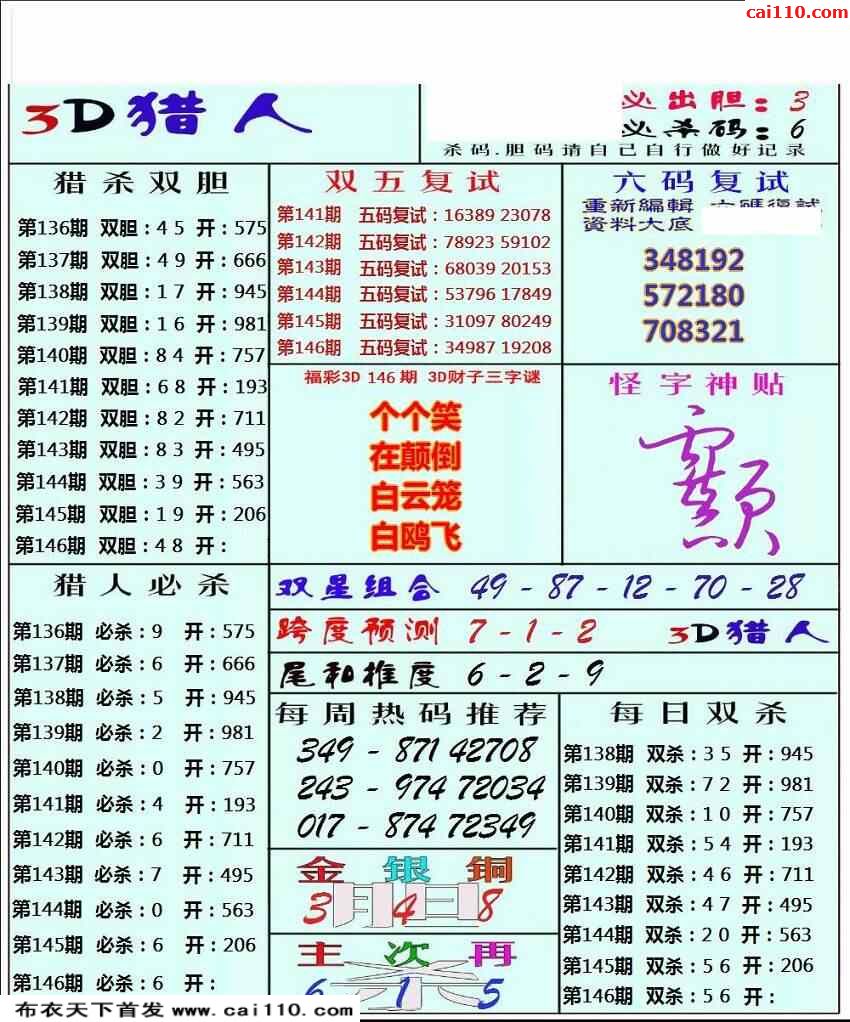 cai110.com
3D猎人
必出胆：3
必杀码：6
杀码.胆码请自己自行做好记录
猎杀双胆
第136期 双胆：4 5 开：575
第137期 双胆：4 9 开：666
第138期 双胆：1 7 开：945
第139期 双胆：1 6 开：981
第140期 双胆：8 4 开：757
第141期 双胆：6 8 开：193
第142期 双胆：8 2 开：711
第143期 双胆：8 3 开：495
第144期 双胆：3 9 开：563
第145期 双胆：1 9 开：206
第146期 双胆：4 8 开：
双五复试
第141期 五码复试：16389 23078
第142期 五码复试：78923 59102
第143期 五码复试：68039 20153
第144期 五码复试：53796 17849
第145期 五码复试：31097 80249
第146期 五码复试：34987 19208
六码复试
重新編輯 六碼復試
資料大底
348192
572180
708321
福彩3D 146期 3D财子三字谜
个个笑
在颠倒
白云笼
白鸥飞
怪字神贴
猎人必杀
第136期 必杀：9 开：575
第137期 必杀：6 开：666
第138期 必杀：5 开：945
第139期 必杀：2 开：981
第140期 必杀：0 开：757
第141期 必杀：4 开：193
第142期 必杀：6 开：711
第143期 必杀：7 开：495
第144期 必杀：0 开：563
第145期 必杀：6 开：206
第146期 必杀：6 开：
双星组合 49 - 87 - 12 - 70 - 28
跨度预测 7 - 1 - 2 3D猎人
尾和推度 6 - 2 - 9
每周热码推荐
349 - 871 42708
243 - 974 72034
017 - 874 72349
金 银 铜
胆
3 4 8
主 次 再
杀
6 1 5
每日双杀
第138期 双杀：3 5 开：945
第139期 双杀：7 2 开：981
第140期 双杀：1 0 开：757
第141期 双杀：5 4 开：193
第142期 双杀：4 6 开：711
第143期 双杀：4 7 开：495
第144期 双杀：2 0 开：563
第145期 双杀：5 6 开：206
第146期 双杀：5 6 开：
布衣天下首发 www.cai110.com